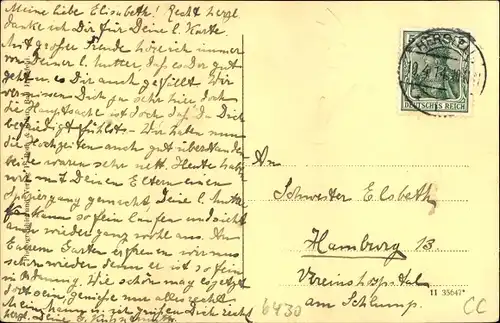 Meine liebe Elisabeth! Recht herzl.
danke ich Dir für Deine l. Karte.
Mit großer Freude höre ich immer
von Deiner l. Mutter daß es Dir gut
geht u. es Dir auch gefällt. Wir
vermissen Dich ja sehr hier doch
die Hauptsache ist doch daß Du Dich
befriedigt fühlst. Wir haben nun
die Hochzeiten auch gut überstanden
beide waren sehr nett. Heute habe
wir mit Deinen Eltern einen
Spaziergang gemacht. Deine l. Mutter
kann so fein laufen und sieht
auch wieder ganz wohl aus. An
Eurem Garten erfreuen wir uns
schon wieder denn er ist so fein
in Ordnung. Wie schön mag es jetzt
dort sein, genieße nur alles recht.
Mein Mann u. ich grüßen Dich recht
herzl. Deine E.
DEUTSCHES REICH
5
An
Schwester Elsbeth
Hamburg 13.
Vereinshospital
am Schlump.
11 35647*
6430
CC